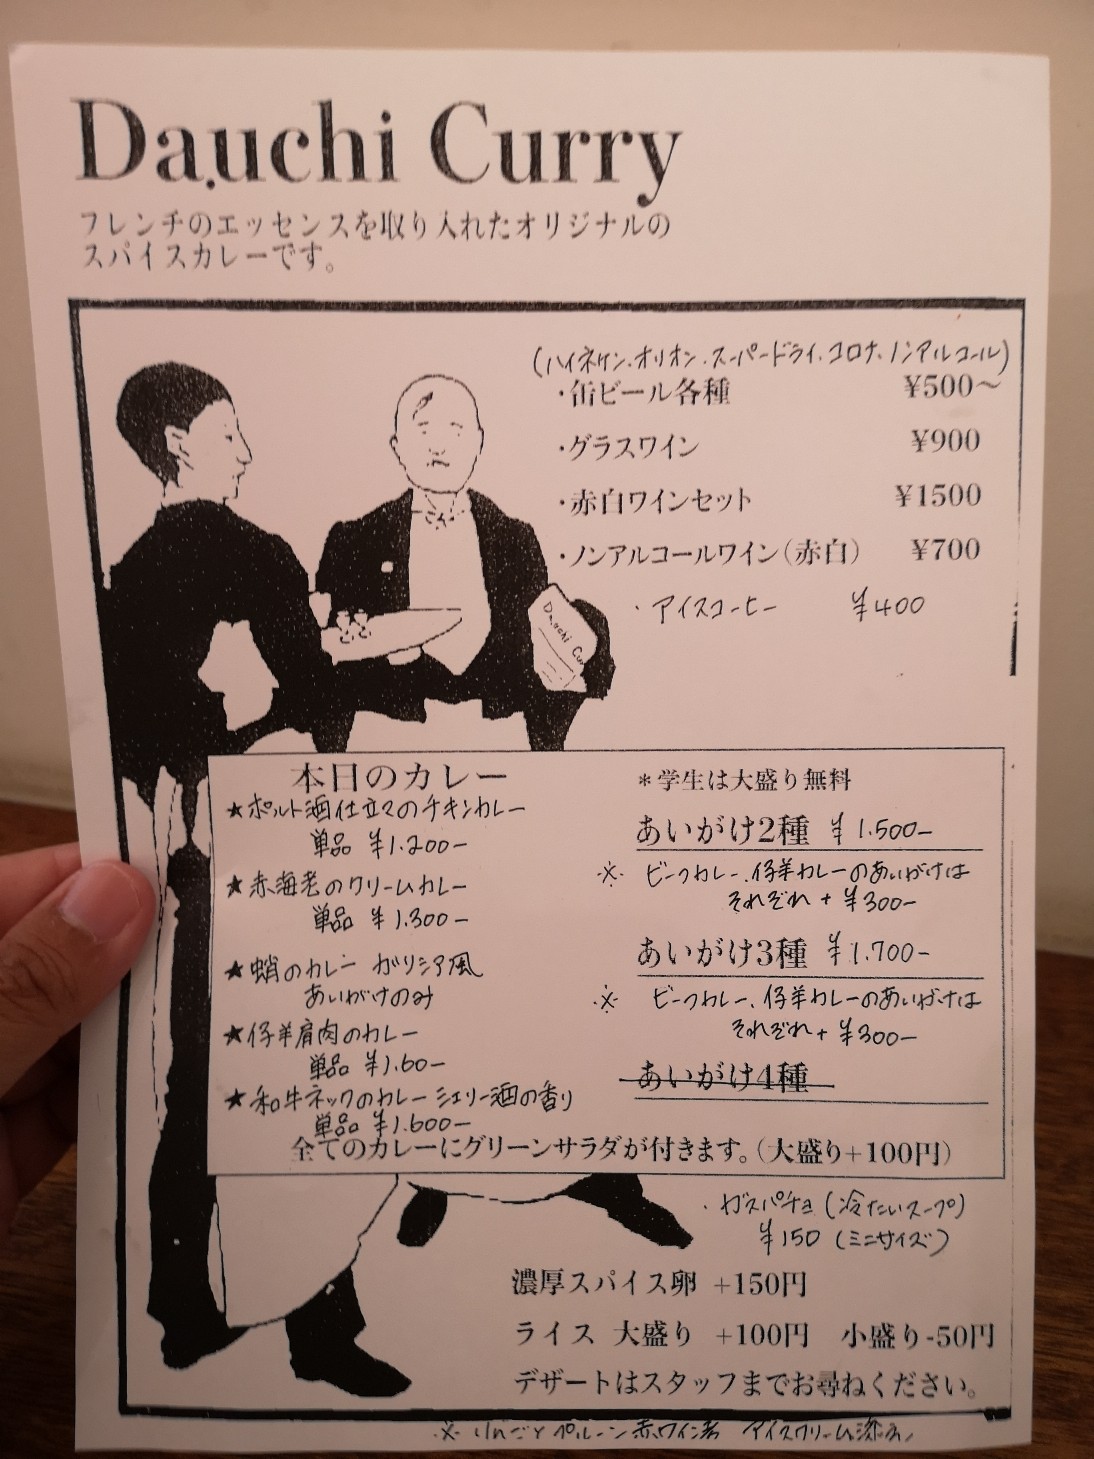 Da.uchi Curry
フレンチのエッセンスを取り入れたオリジナルの
スパイスカレーです。
(ハイネケン.オリオン.スーパードライ.コロナ.ノンアルコール)
・缶ビール各種 ¥500〜
・グラスワイン ¥900
・赤白ワインセット ¥1500
・ノンアルコールワイン(赤白) ¥700
・アイスコーヒー ¥400
Da.uchi Cu
本日のカレー
★ポルト酒仕立てのチキンカレー
単品 ¥1.200-
★赤海老のクリームカレー
単品 ¥1.300-
★蛸のカレー ガリシア風
あいがけのみ
★仔羊肩肉のカレー
単品 ¥1.60-
★和牛ネックのカレー シェリー酒の香り
単品 ¥1.600-
*学生は大盛り無料
あいがけ2種 ¥1.500-
※ ビーフカレー.仔羊カレーのあいがけは
それぞれ+¥300-
あいがけ3種 ¥1.700-
※ ビーフカレー、仔羊カレーのあいがけは
それぞれ+¥300-
あいがけ4種
全てのカレーにグリーンサラダが付きます。(大盛り+100円)
・ガスパチョ(冷たいスープ)
¥150(ミニサイズ)
濃厚スパイス卵 +150円
ライス 大盛り +100円 小盛り-50円
デザートはスタッフまでお尋ねください。
※ りんごとプルーン赤ワイン煮 アイスクリーム添え